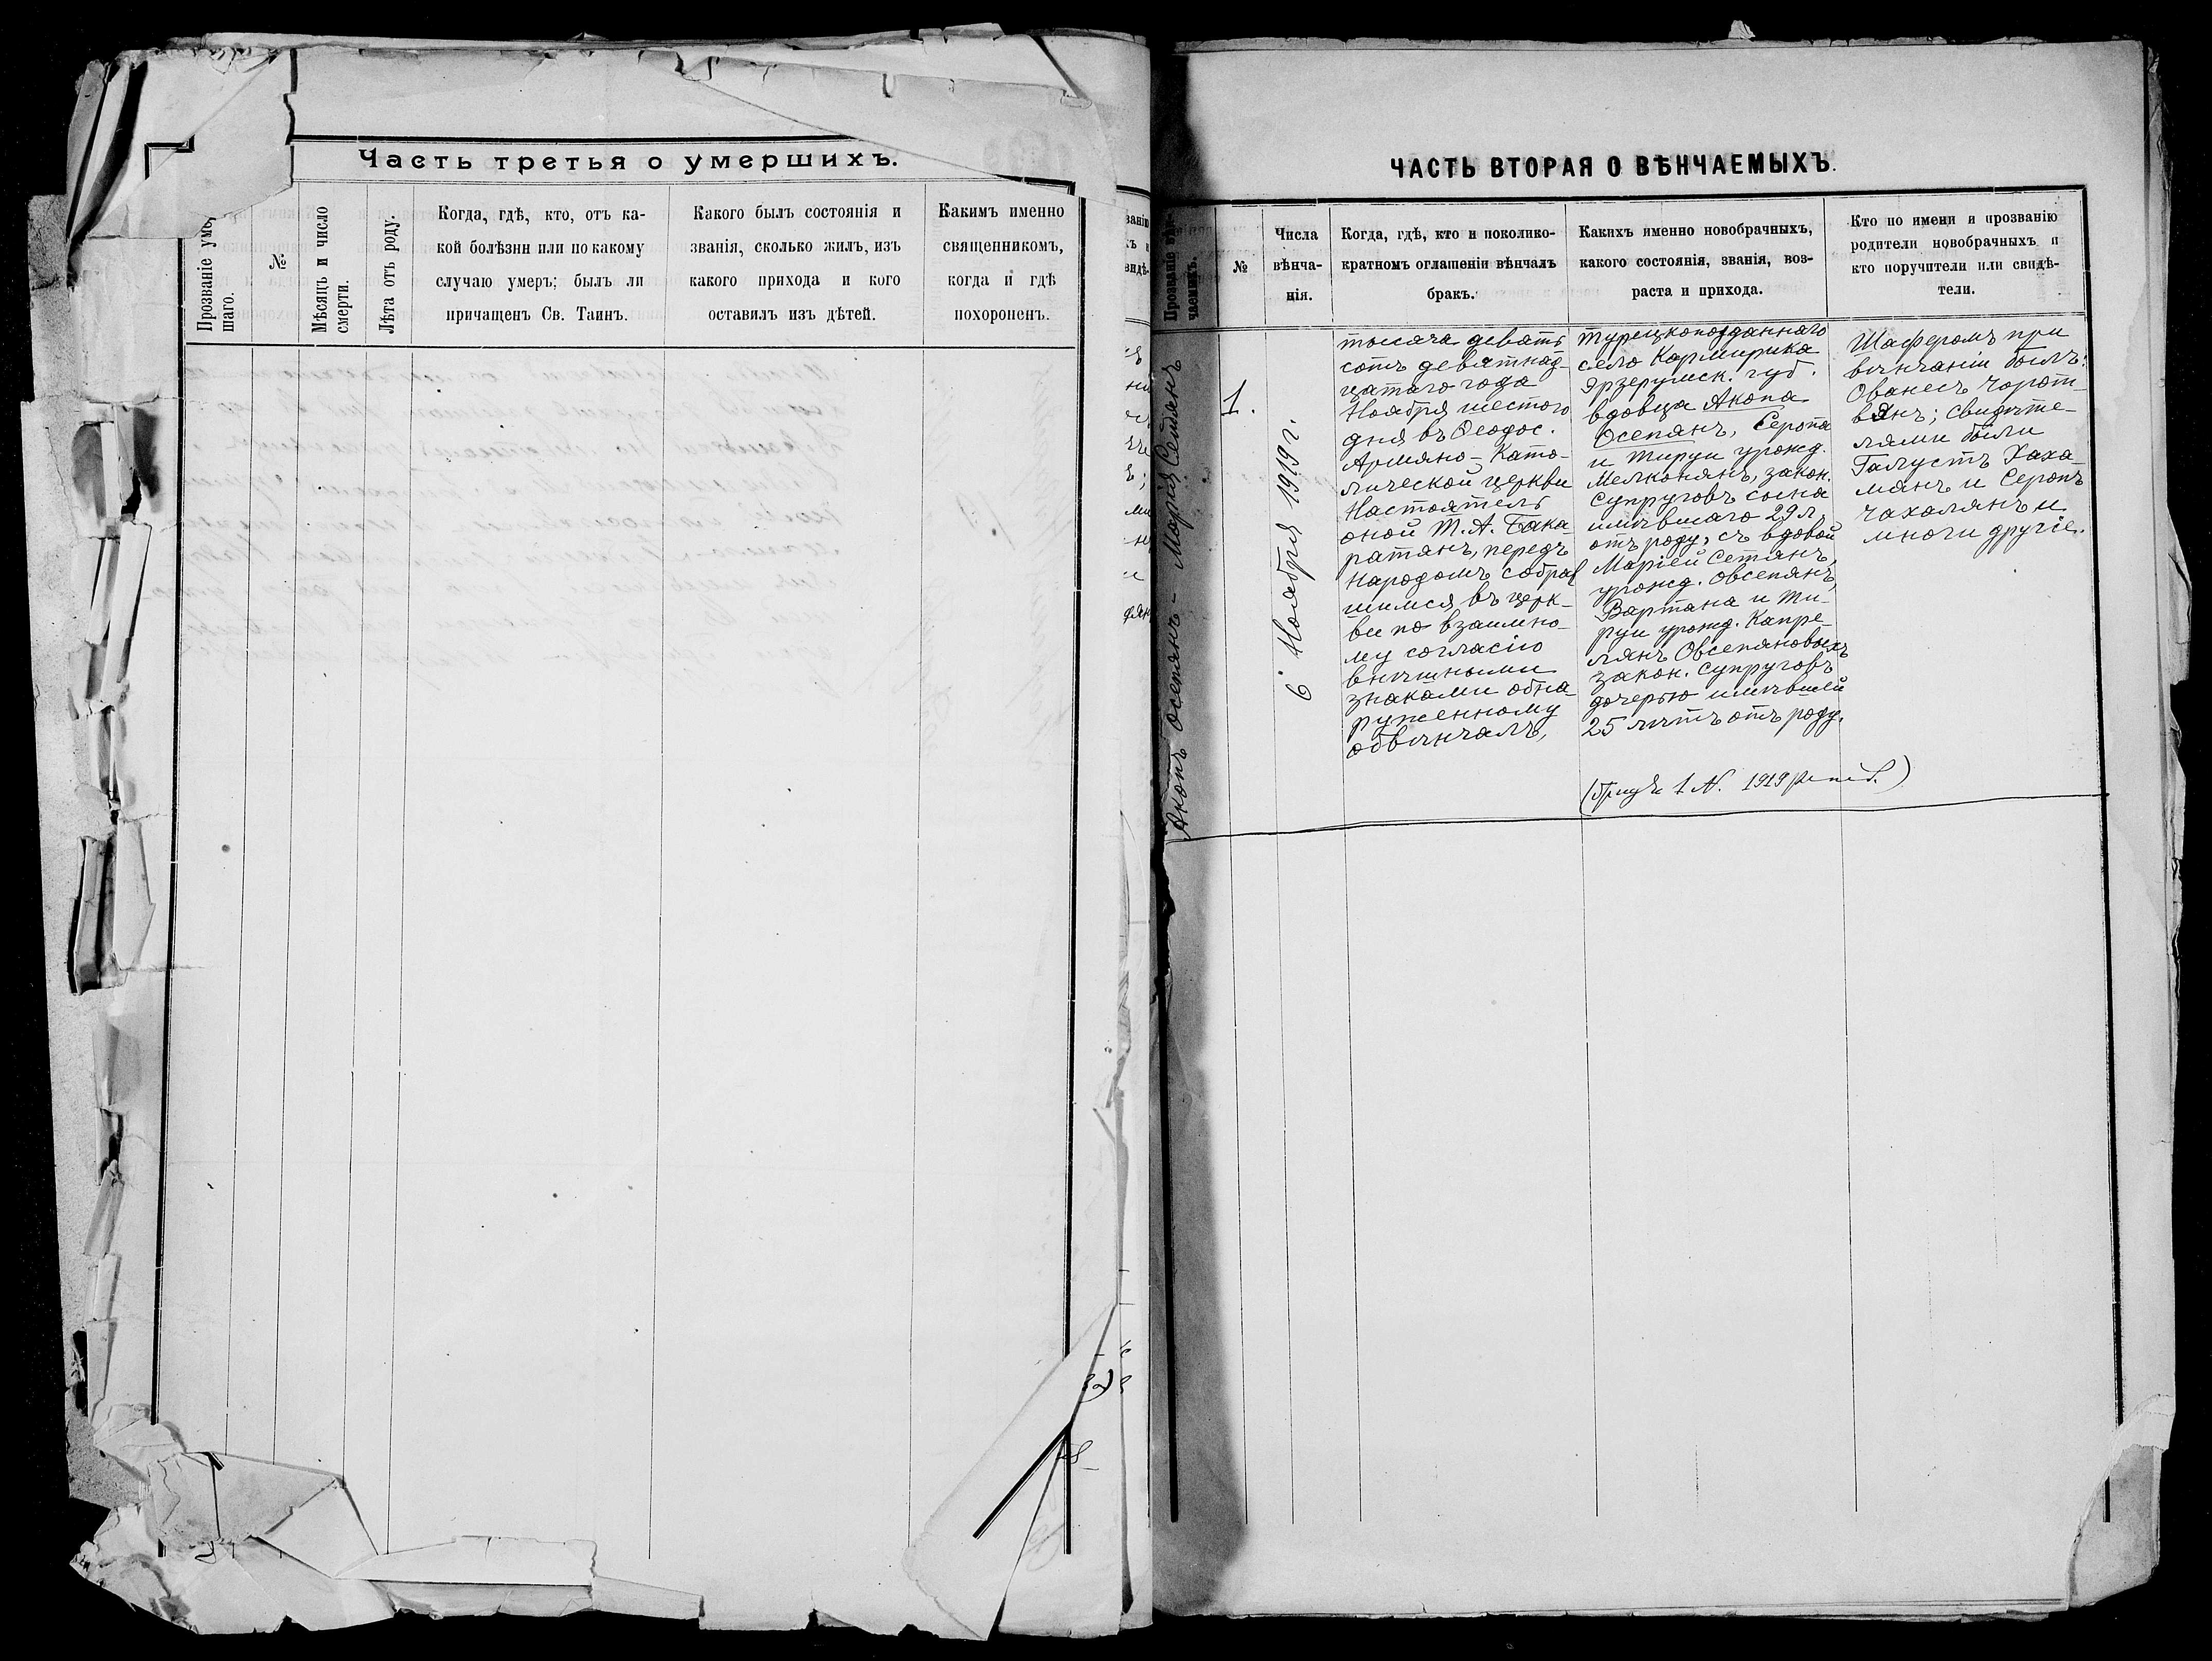 Часть третья о умершихъ.
Прозваніе уме
шаго.
№
Мѣсяцъ и число
смерти.
Лѣта отъ роду.
Когда, гдѣ, кто, отъ ка-
кой болѣзни или по какому
случаю умеръ; былъ ли
причащенъ Св. Таинъ.
Какого былъ состоянія и
званія, сколько жилъ, изъ
какого прихода и кого
оставилъ изъ дѣтей.
Какимъ именно
священникомъ,
когда и гдѣ
похороненъ.
ЧАСТЬ ВТОРАЯ О ВѢНЧАЕМЫХЪ.
Прозваніе вѣн-
чаемыхъ.
№
Числа
вѣнча-
нія.
Когда, гдѣ, кто и поколико-
кратномъ оглашеніи вѣнчалъ
бракъ.
Какихъ именно новобрачныхъ,
какого состоянія, званія, воз-
раста и прихода.
Кто по имени и прозванію
родители новобрачныхъ и
кто поручители или свидѣ-
тели.
Акопъ Осепянъ - Марія Сетянъ
1.
6 Ноября 1919 г.
тысяча девять
сотъ девятнад-
цатаго года
Ноября шестого
дня въ Ѳеодос.
Армяно-Като-
лической церкви
Настоятель
оной Т. А. Бака
ратянъ, передъ
народомъ собрав
шимся въ церк-
ви по взаимно-
му согласію
внѣшними
знаками обна-
руженному
обвѣнчалъ,
турецкоподданнаго
село Кармирика
Эрзерумск. губ.
вдовца Акопа
Осепянъ, Серопа
и Тируи урожд.
Мелконянъ, закон.
супруговъ сына
имѣвшаго 29 л.
отъ роду, съ вдовой
Маріей Сетянъ,
урожд. Овсепянъ,
Вартана и Ти-
руи урожд. Капре-
лянъ Овсепяновыхъ
закон. супруговъ
дочерью имѣвшей
25 лѣтъ отъ роду.
1919
Шаферомъ при
вѣнчаніи былъ:
Ованесъ Чорот-
вянъ; свидѣте-
лями были
Галустъ Хаха-
мянъ и Серопъ
Чахалянъ и
многи другіе.